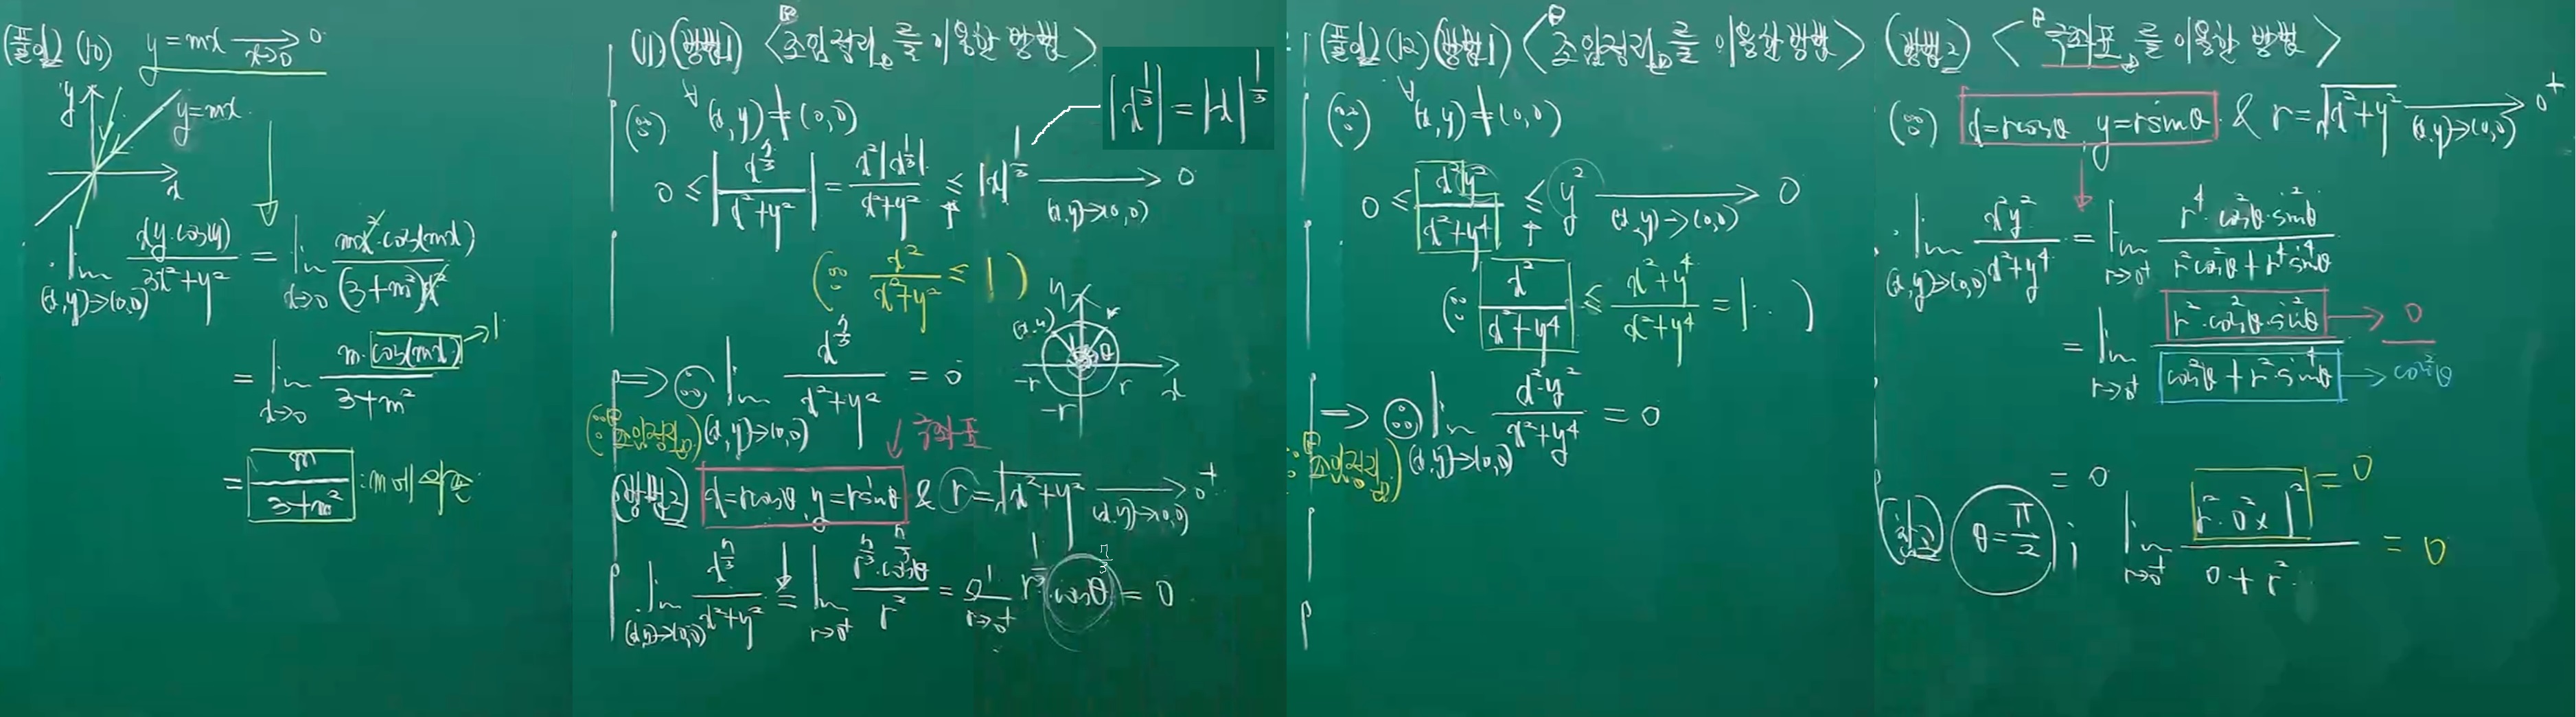 (풀이) (10) y=mx → 0
x→0
y
y=mx
x
lim (x,y)→(0,0) xy·cos(y) / 3x²+y² = lim x→0 mx²·cos(mx) / (3+m²)x²
= lim x→0 m·cos(mx) / 3+m² → 1
= m / 3+m² : m에 의존
(11) (방법1) <조임정리를 이용한 방법>
(∵) ∀(x,y)≠(0,0)
|x^{1/3}| = |x|^{1/3}
0 ≤ | x^{7/3} / x²+y² | = x²|x^{1/3}| / x²+y² ≤ |x|^{1/3} → 0
(x,y)→(0,0)
(∵ x² / x²+y² ≤ 1)
⇒ ∴ lim (x,y)→(0,0) x^{7/3} / x²+y² = 0
(∵ 조임정리)
y
(x,y)
θ
-r r x
-r
극좌표
(방법2) x=rcosθ, y=rsinθ & r=√x²+y² → 0⁺
(x,y)→(0,0)
lim (x,y)→(0,0) x^{7/3} / x²+y² = lim r→0⁺ r^{7/3}·cos^{7/3}θ / r² = lim r→0⁺ r^{1/3} cos^{7/3}θ = 0
(풀이) (12) (방법1) <조임정리를 이용한 방법>
(∵) ∀(x,y)≠(0,0)
0 ≤ x²y² / x²+y⁴ ≤ y² → 0
(x,y)→(0,0)
(∵ x² / x²+y⁴ ≤ x²+y⁴ / x²+y⁴ = 1)
⇒ ∴ lim (x,y)→(0,0) x²·y² / x²+y⁴ = 0
(∵ 조임정리)
(방법2) <극좌표를 이용한 방법>
(∵) x=rcosθ y=rsinθ & r=√x²+y² → 0⁺
(x,y)→(0,0)
lim (x,y)→(0,0) x²y² / x²+y⁴ = lim r→0⁺ r⁴·cos²θ·sin²θ / r²cos²θ+r⁴sin⁴θ
= lim r→0⁺ r²·cos²θ·sin²θ / cos²θ+r²·sin⁴θ → 0 / cos²θ
= 0
θ=π/2 ; lim r→0⁺ r²·0²×1² / 0+r² = 0
= 0